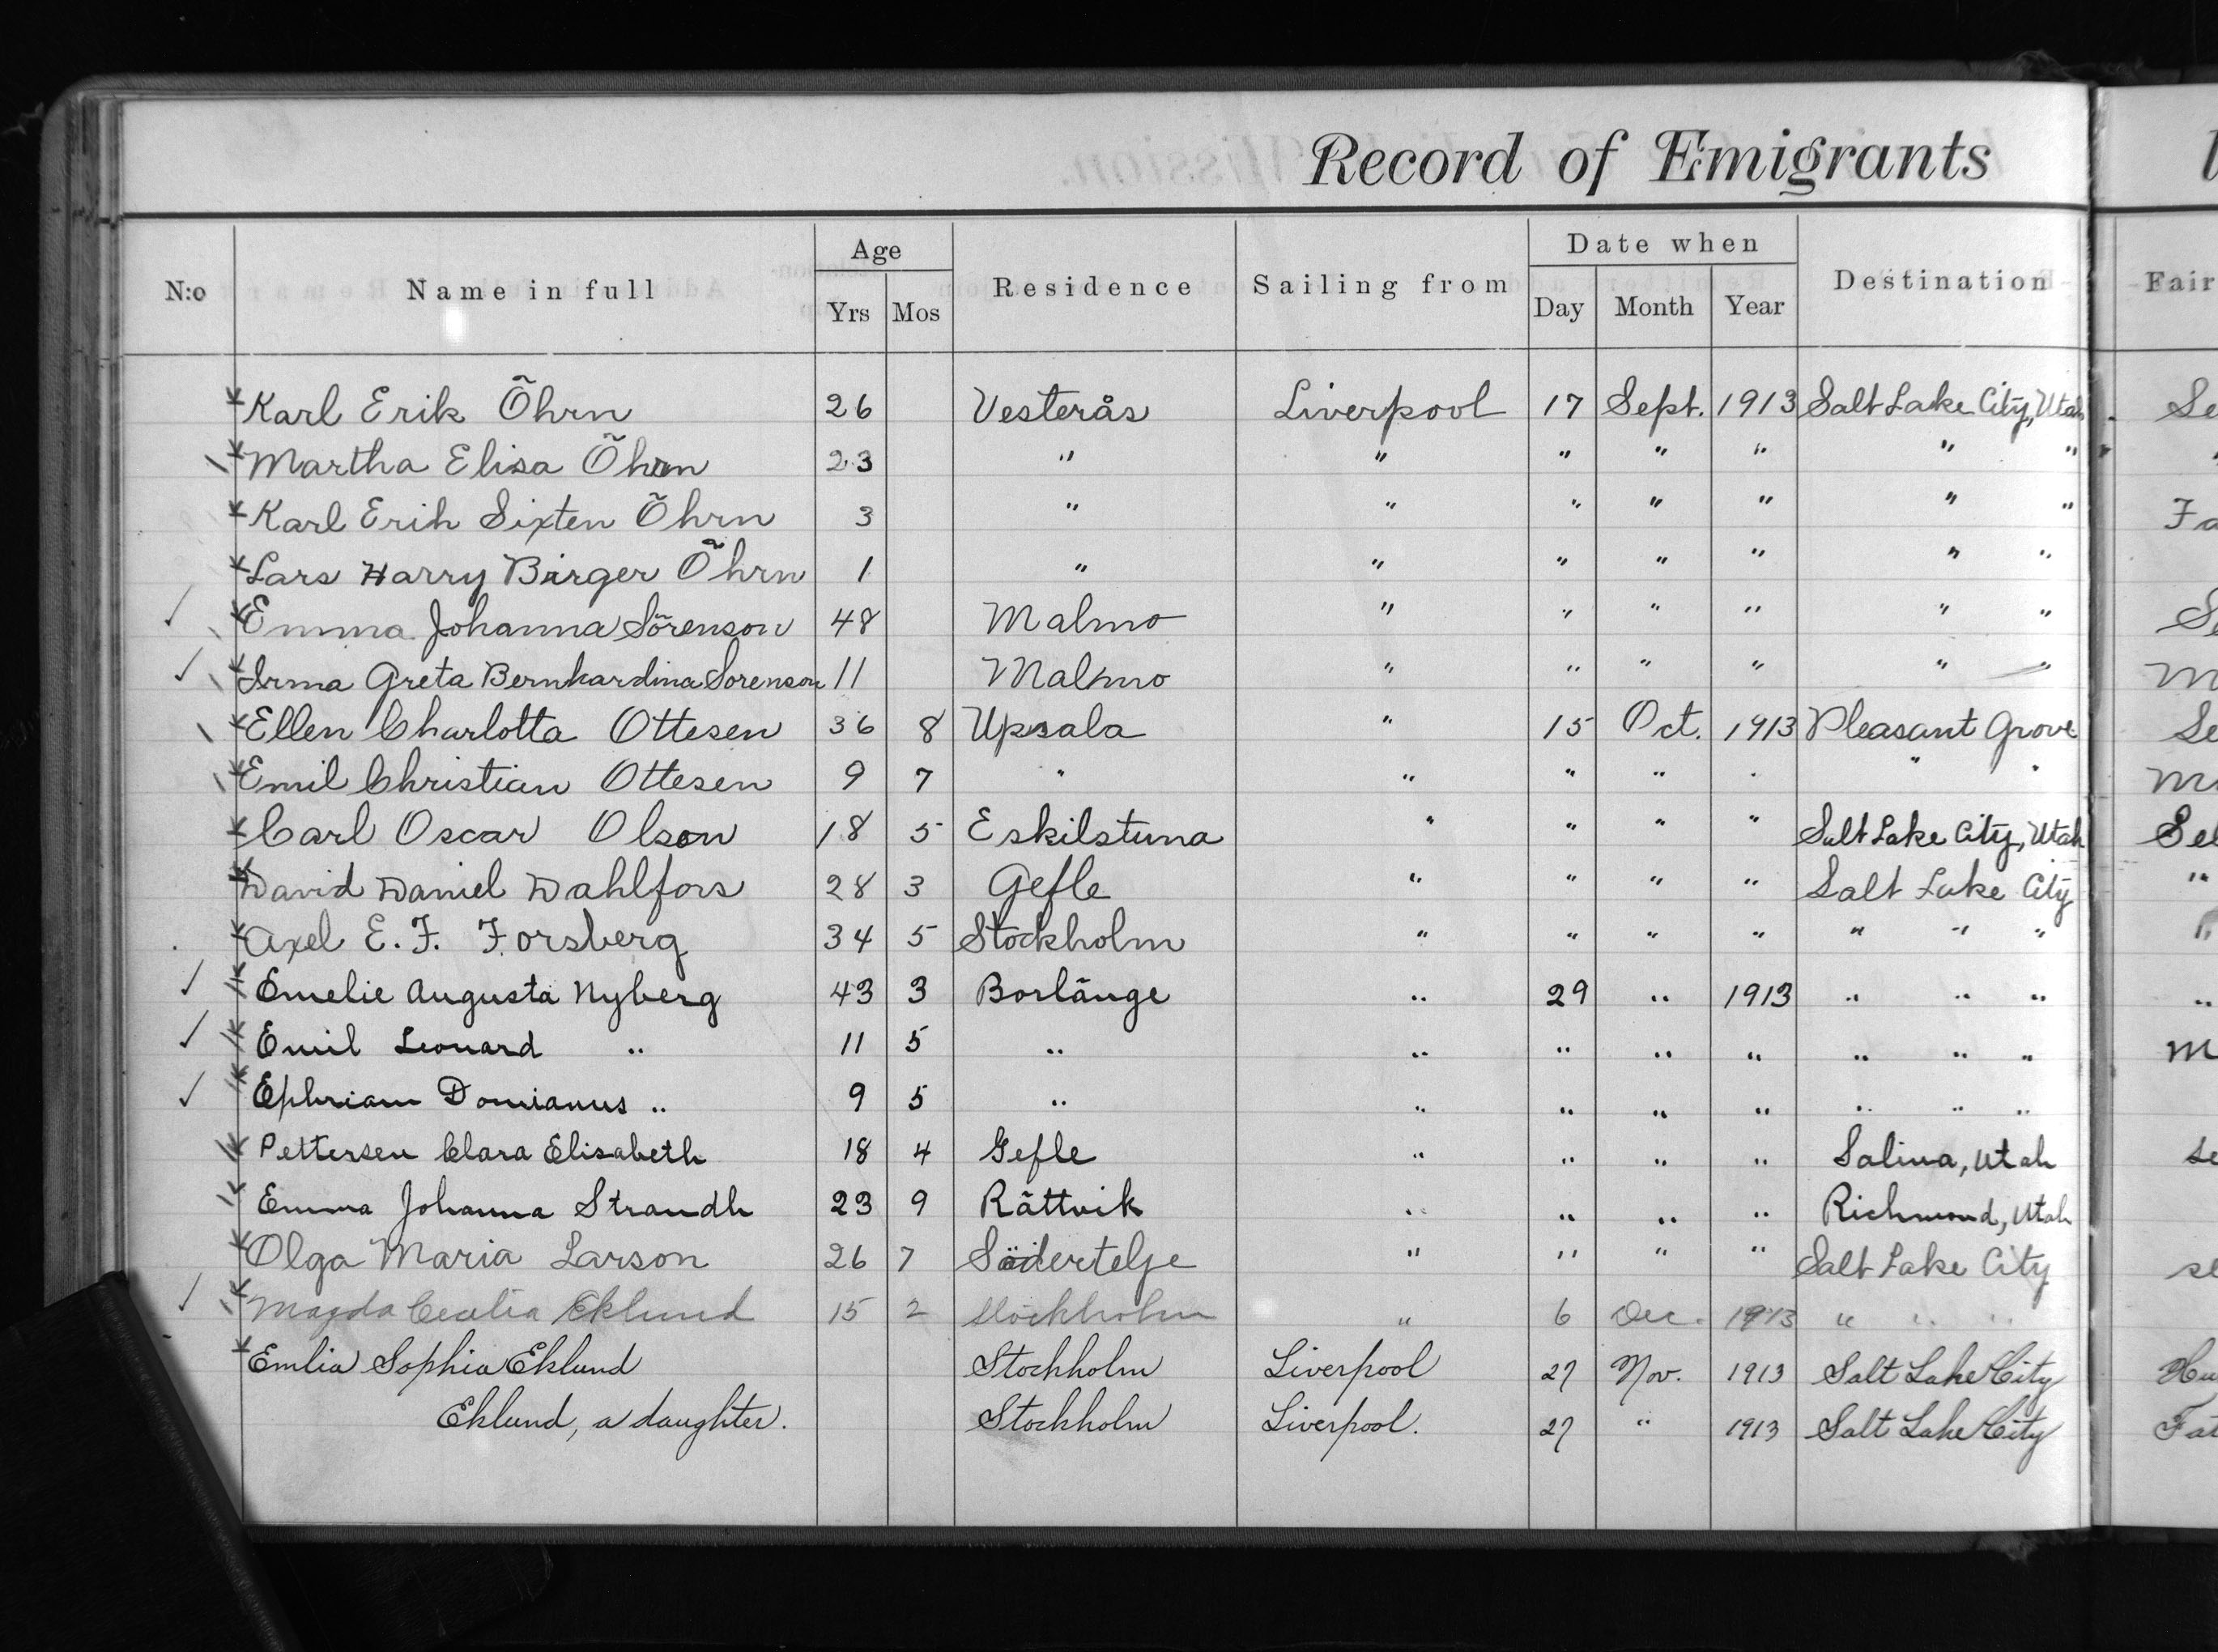 Record of Emigrants
N:o Name in full Age Yrs Mos Residence Sailing from Date when Day Month Year Destination Fair
Karl Erik Õhrn 26 Vesterås Liverpool 17 Sept. 1913 Salt Lake City, Utah. Se
Martha Elisa Õhrn 23 " " " " " " "
Karl Erik Sixten Õhrn 3 " " " " " " " Fa
Lars Harry Birger Õhrn 1 " " " " " " "
✓ Emma Johanna Sõrenson 48 Malmo " " " " " " Se
✓ Irma Greta Bernhardina Sorenson 11 Malmo " " " " " " M
Ellen Charlotta Ottesen 36 8 Upsala " 15 Oct. 1913 Pleasant Grove Se
Emil Christian Ottesen 9 7 " " " " " " " M
Carl Oscar Olson 18 5 Eskilstuna " " " " Salt Lake City, Utah Sel
David Daniel Dahlfors 28 3 Gefle " " " " Salt Lake City "
Axel E. F. Forsberg 34 5 Stockholm " " " " " " "
✓ Emelie Augusta Nyberg 43 3 Borlänge " 29 " 1913 " " " "
✓ Emil Leonard " 11 5 " " " " " " " " M
✓ Ephriam Domianus " 9 5 " " " " " " " "
Pettersen Clara Elisabeth 18 4 Gefle " " " " Salina, Utah Se
Emma Johanna Strandh 23 9 Rättvik " " " " Richmond, Utah
Olga Maria Larson 26 7 Södertelje " " " " Salt Lake City se
✓ Magda Cecilia Eklund 15 2 Stockholm " 6 Dec. 1913 " " "
Emlia Sophia Eklund Stockholm Liverpool 27 Nov. 1913 Salt Lake City Hu
Eklund, a daughter. Stockholm Liverpool. 27 " 1913 Salt Lake City Fat